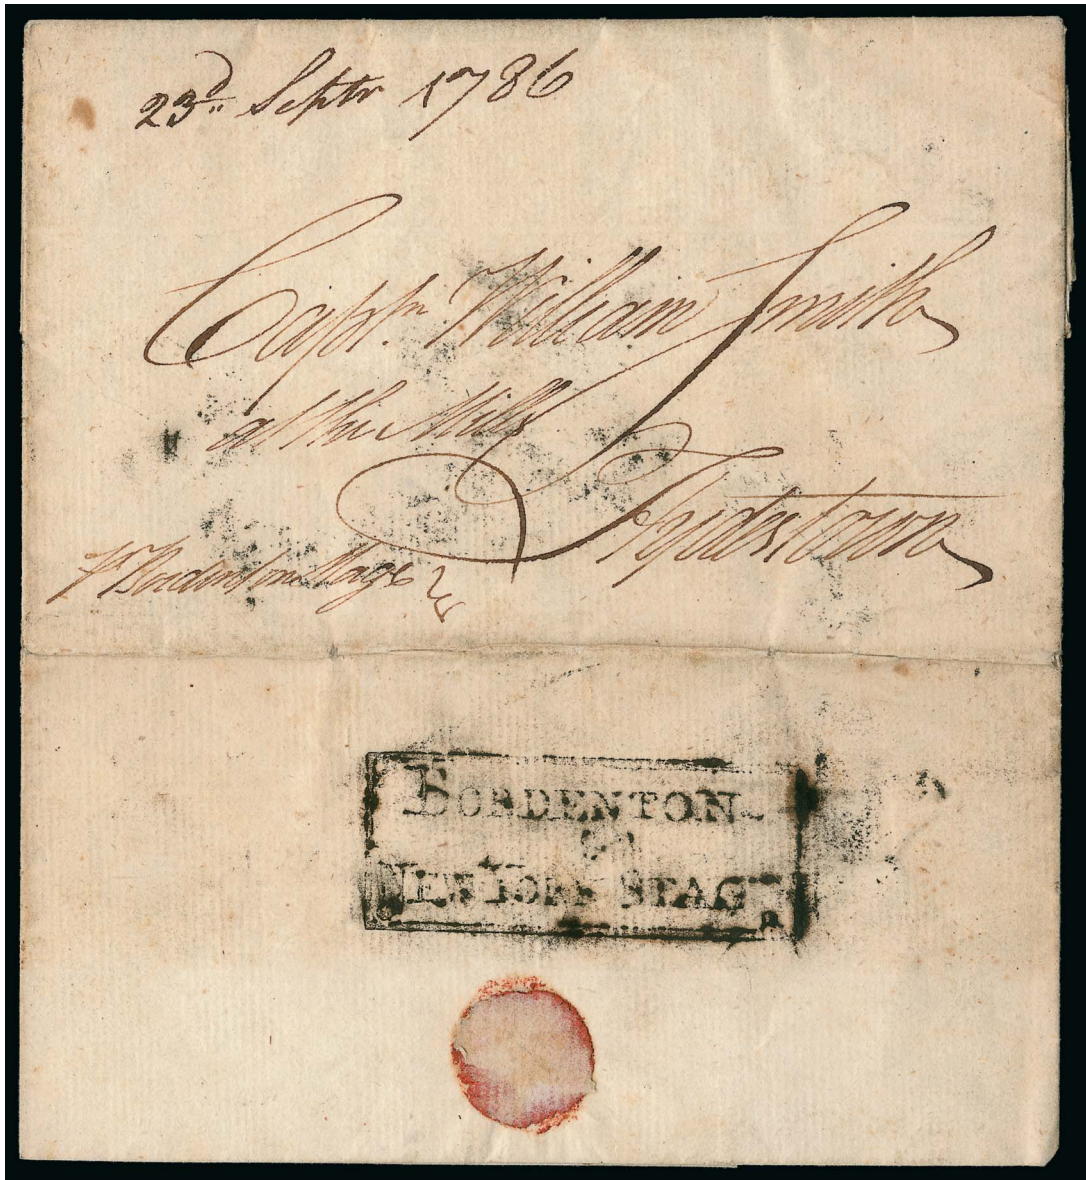 23d. Septr 1786
Captn. William Smith
at the Mills
Hydestown
Pr. Bordenton Stage
BORDENTON
&
NEW YORK STAGE